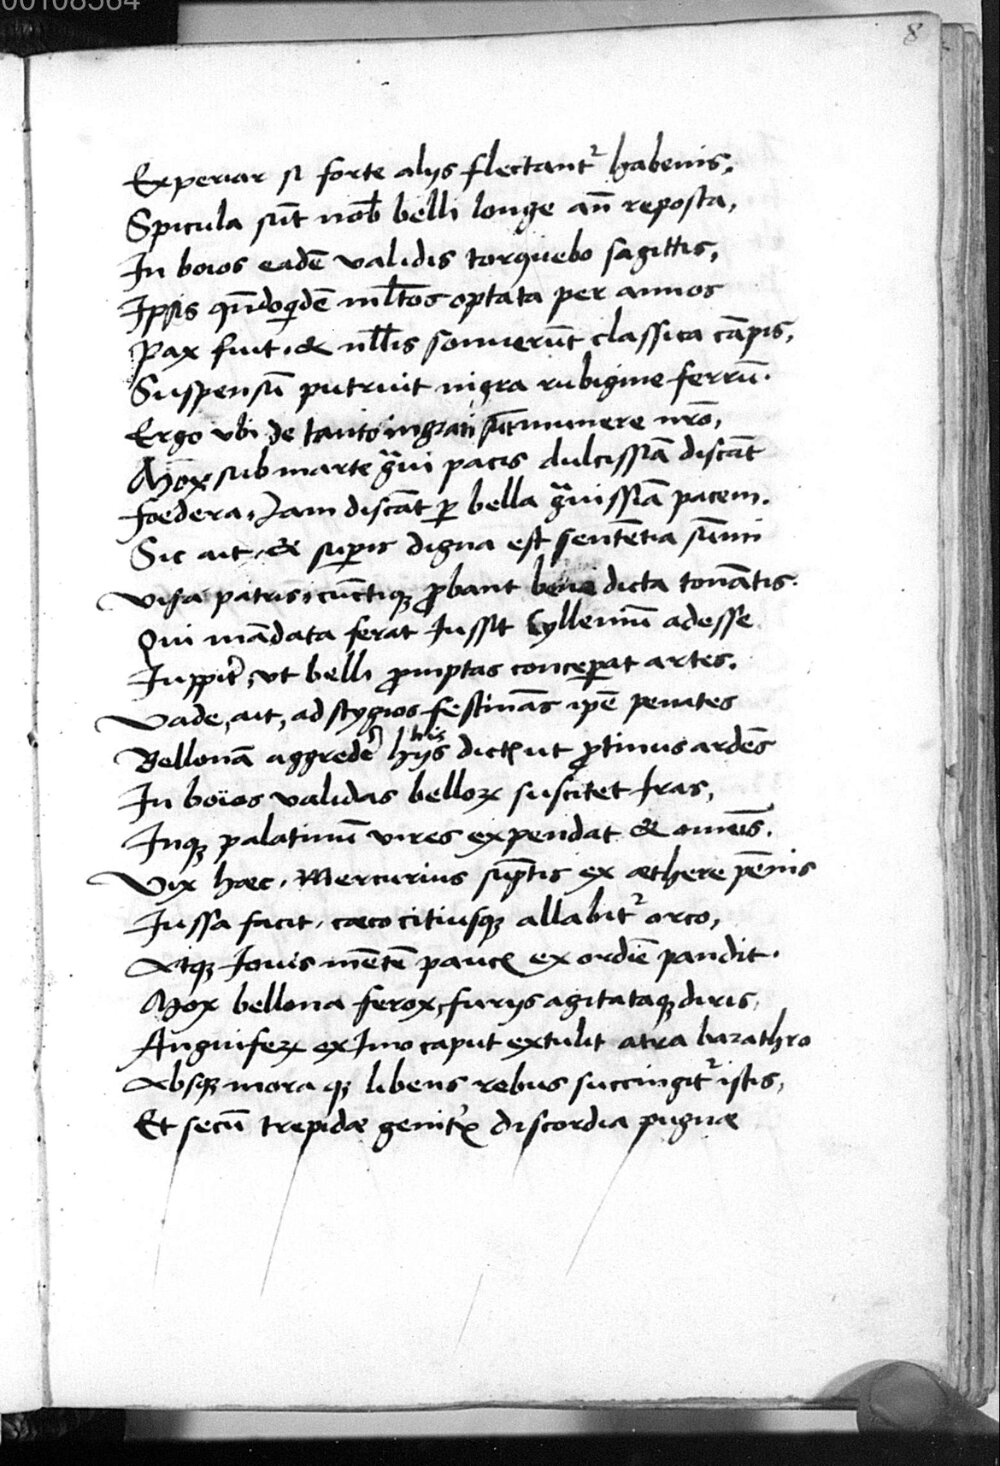 00108564
8
Experiar si forte alijs flectant᷑ habenis,
Spicula sūt nob̄ belli longe añ reposta,
In boios eadē validis torquebo sagittis,
Ipsis qn̄doqͥdē ml̄tos optata per annos
Pax fuit, & nll̄is sonuerūt classica cāpis,
Suspensū putruit nigra rubigine ferrū.
Ergo vbi de tanto ingrati sūt munere nr̄o,
Mox sub marte gͣui pacis dulcissīā discāt
foedera, Iam discāt ꝑ bella gͣuissīā pacem.
Sic ait, & suꝑis digna est sentētia sūmi
Visa patris, cūctiqꝫ ꝓbant bene dicta tonātis.
Qui mādata ferat Iussit Cylleniū adesse
Iuppit̄, vt belli ꝓmptas conceꝑat artes.
Vade, ait, ad stygios festinās ipē penates
Bellonā aggredēs hijs dictꝭ ut ꝓtinus ardēs
In boïos validas belloꝝ suscitet Iras,
Inqꝫ palatinū vires expendat & omēs.
Vix haec, Mercurius sūptis ex aethere pēnis
Iussa facit, caeco citiusqꝫ allabit᷑ orco,
Atqꝫ Iouis mētē paucꝭ ex ordīe pandit.
Mox bellona ferox, furijs agitataqꝫ diris,
Anguifeꝝ ex Imo caput extulit atra barathro
Absqꝫ mora qꝫ libens rebus succingit᷑ istis,
Et secū trepidae genitͥx discordia pugnae